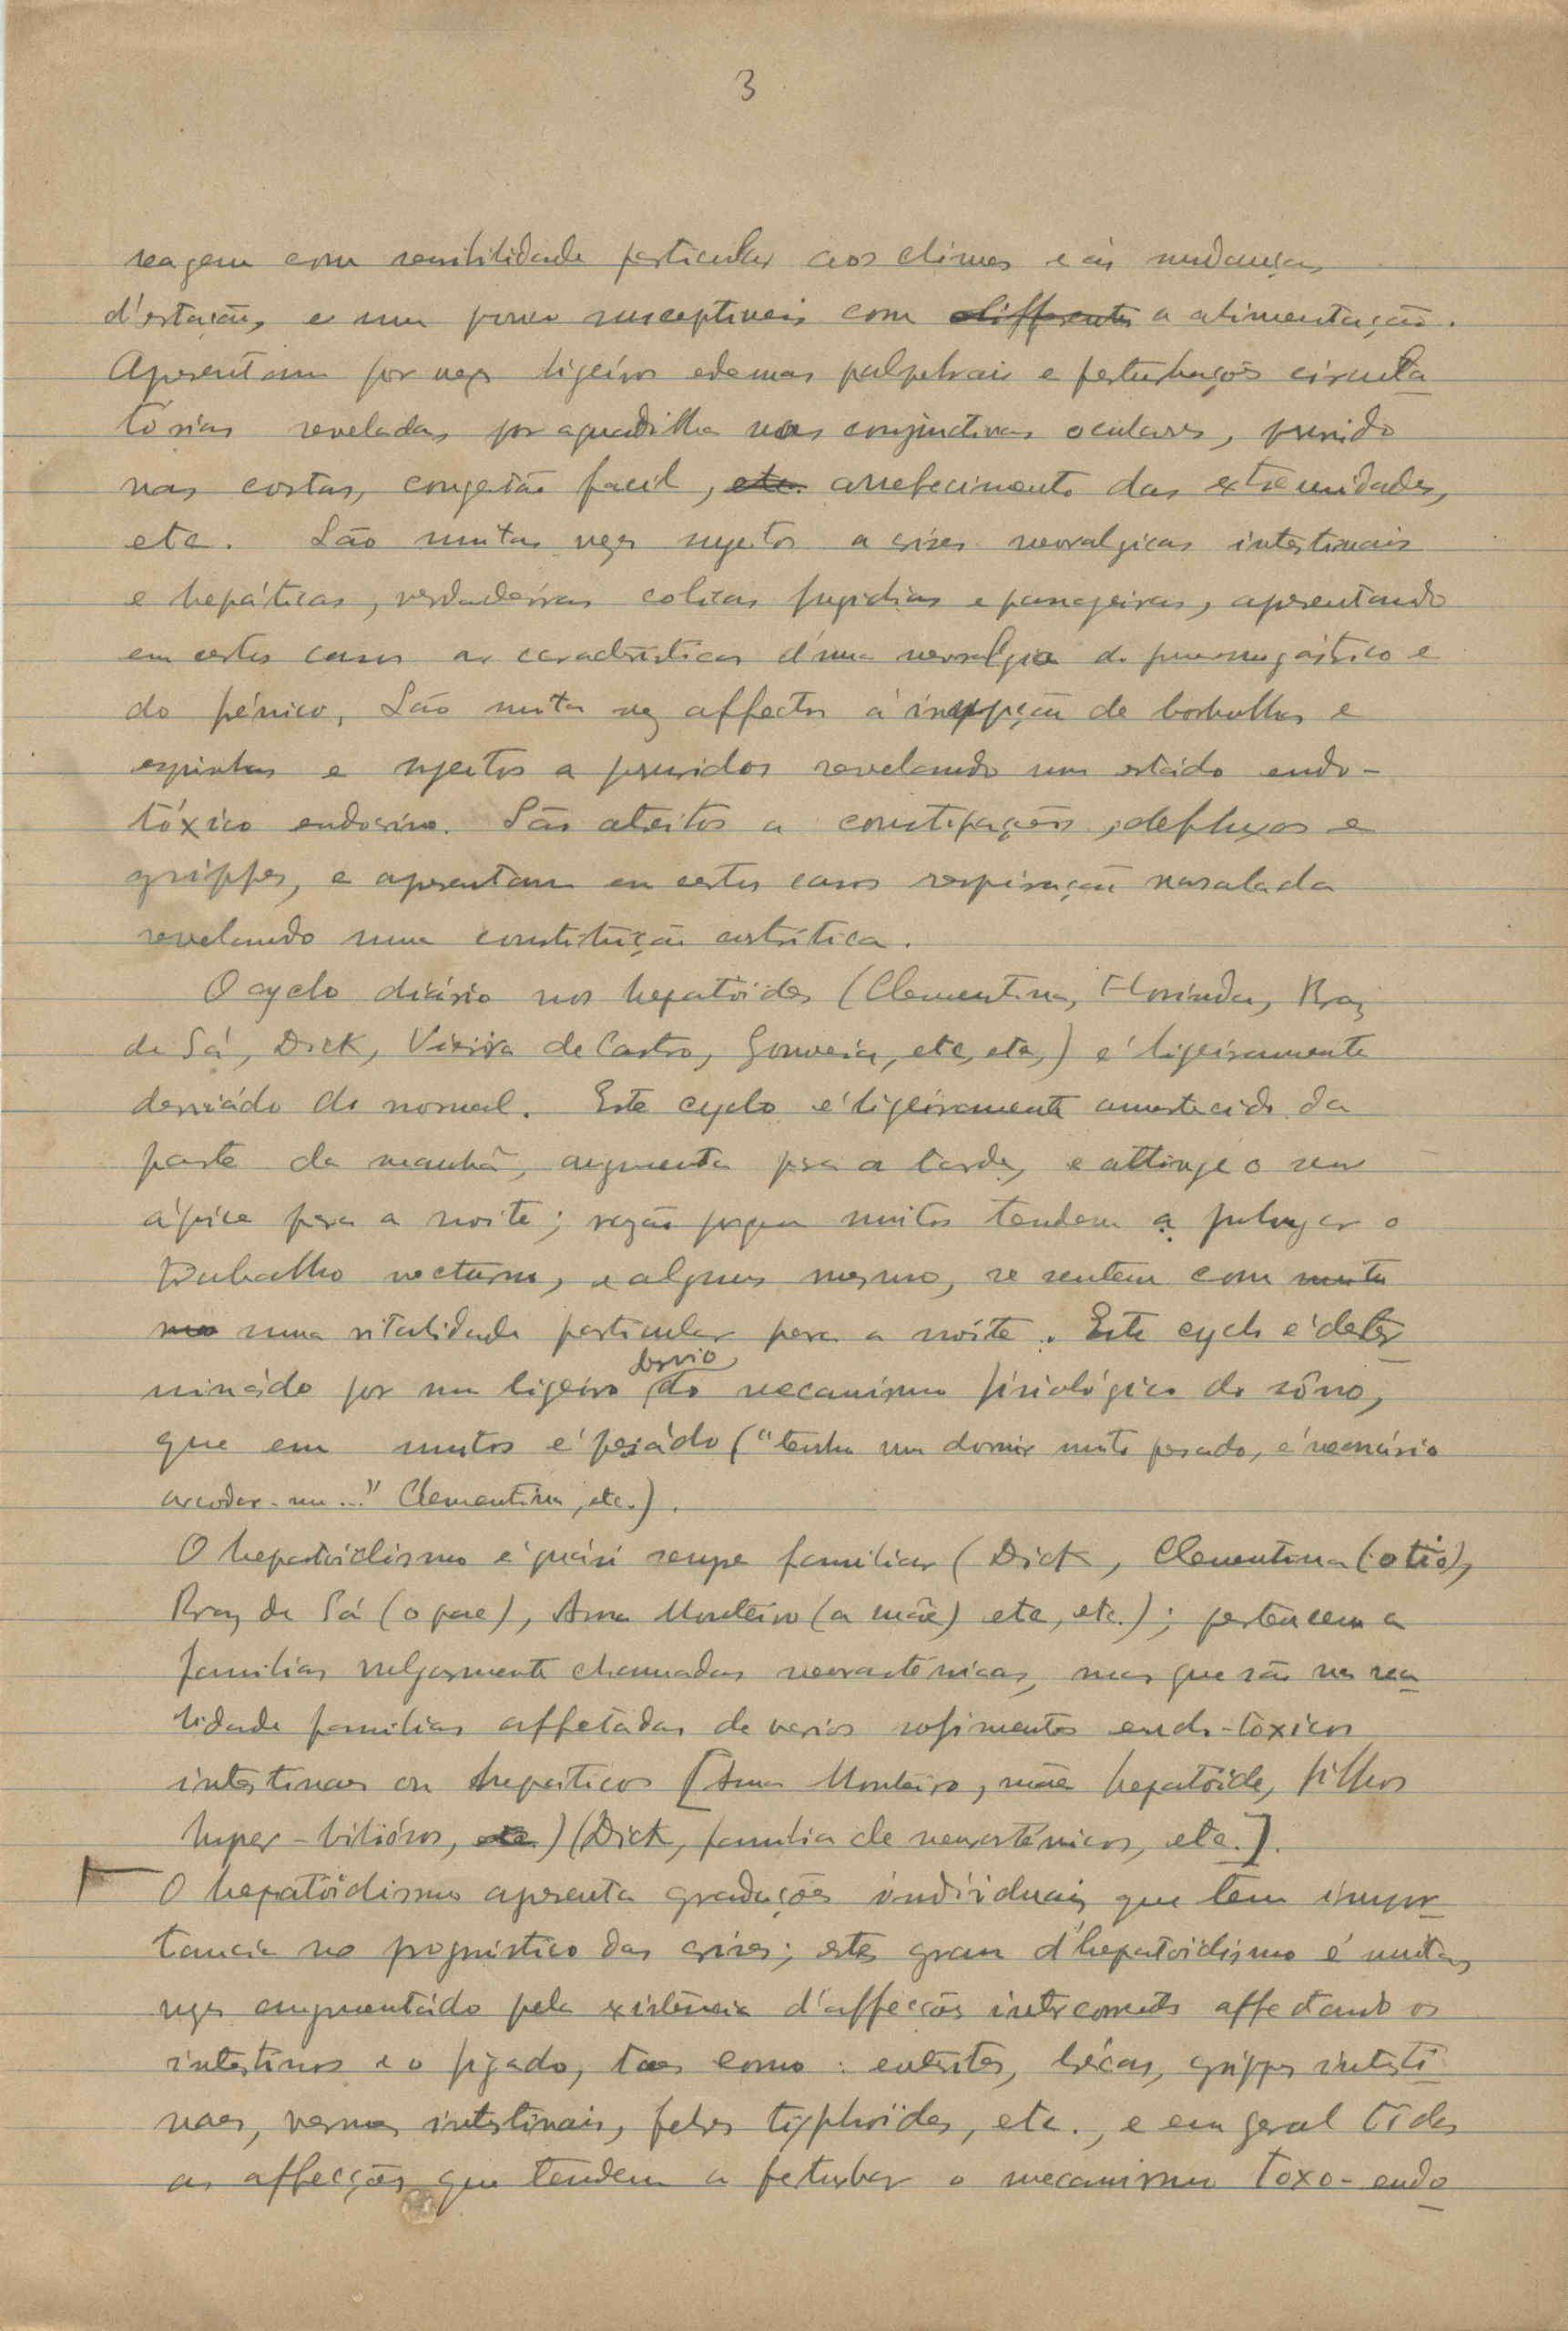 3
reagem com sensibilidade particular aos climas e ás mudanças
d'estação, e um pouco susceptiveis com differentes a alimentação.
Apresentam por vezes ligeiros edemas palpebrais e perturbações circula
tórias reveladas por aguadilha nas conjunctivas oculares, prurido
nas costas, congestão facil, etc. arrefecimento das extremidades,
etc. São muitas vezes sujeitos a crises nevralgicas intestinais
e hepáticas, verdadeiras colicas fugidias e passageiras, apresentando
em certos casos as caracteristicas d'uma nevralgia do pneumogástrico e
do frénico. São muita vez affectos á de borbulhas e
espinhas e sujeitos a pruridos revelando um estádo endo-
tóxico endocrino. São atreitos a constipações, defluxos e
grippes, e apresentam em certos casos respiração nasalada
revelando uma constituição artritica.
O cyclo diário nos hepatoides (Clementina, Florinda, Braz
de Sá, Dick, Vieira de Castro, Gouveia, etc, etc,) é ligeiramente
desviádo do normal. Este cyclo é ligeiramente amortecido da
parte da manhã, augmenta pra a tarde, e attinge o seu
ápice para a noite; razão porque muitos tendem a o
trabalho nocturno, e alguns mesmo, se sentem com muita
uma vitalidade particular para a noite. Este cyclo é deter
minádo por um ligeiro desvio do mecanismo fisiológico do sôno,
que em muitos é pesádo ("tenho um dormir muito pesado, é necessário
acordar-me..." Clementina, etc.).
O hepatoidismo é quási sempre familiar (Dick, Clementina (o tio),
Braz de Sá (o pae), Ana Monteiro (a mãe) etc, etc.); pertencem a
familias vulgarmente chamadas nevrasténicas, mas que são na rea
lidade familias affetádas de varios sofrimentos endo-tóxicos
intestinaes ou hepáticos [Ana Monteiro, mãe hepatóide, filhos
hyper-biliósos, etc.) (Dick, familia de nevrasténicos, etc.].
O hepatoidismo apresenta graduações individuais que tem impor
tancia no prognóstico das crises; este grau d'hepatoidismo é muitas
vezes augmentádo pela existência d'affecções intercorrentes affectando os
intestinos e o figado, taes como: enterites, grippes intesti
naes, vermes intestinais, febres typhoides, etc., e em geral tôdas
as affecções que tendem a perturbar o mecanismo toxo-endo